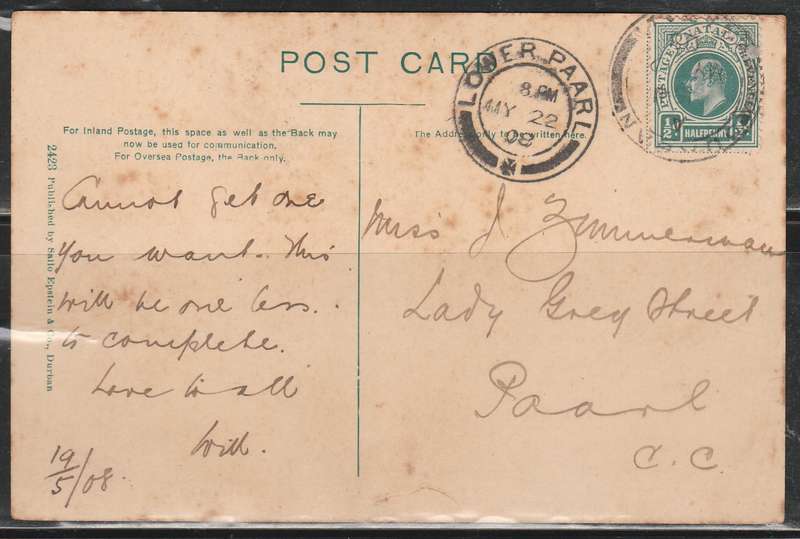 POST CARD
For Inland Postage, this space as well as the Back may
now be used for communication.
For Oversea Postage, the Back only.
The Address only to be written here.
LOWER PAARL
8 PM
MAY 22
08
POSTAGE NATAL REVENUE
½ HALFPENNY ½
2423 Published by Sallo Epstein & Co., Durban
Cannot get one
you want. This
will be one less.
to complete.
Love to all
Will.
19/5/08.
Miss J Zimmerman
Lady Grey Street
Paarl
C.C.